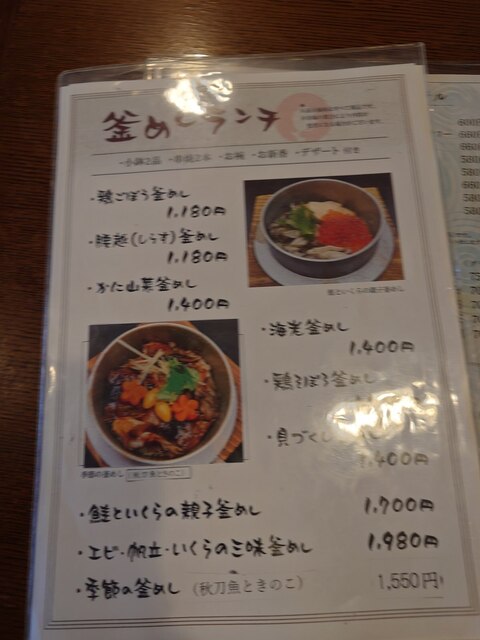 釜めしランチ
・小鉢2品 ・串焼2本 ・お椀 ・お新香 ・デザート 付き
・鶏ごぼう釜めし
1,180円
(しらす)釜めし
1,180円
・かに山菜釜めし
1,400円
鮭といくらの親子釜めし
・海老釜めし
1,400円
・鶏そぼろ釜めし
・貝づくし
1,400円
季節の釜めし (秋刀魚ときのこ)
・鮭といくらの親子釜めし 1,700円
・エビ・帆立・いくらの三味釜めし 1,980円
・季節の釜めし (秋刀魚ときのこ) 1,550円